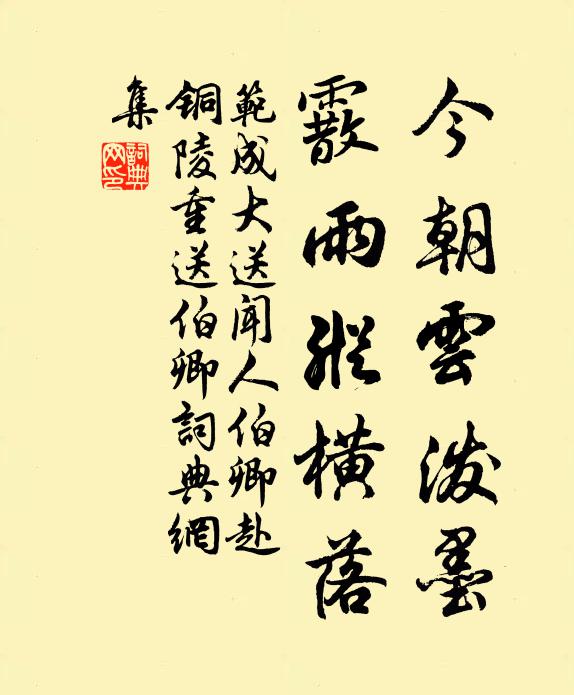 今朝雲潑墨
霰雨縱橫落
範成大送聞人伯卿赴
銅陵重送伯卿詞典網
集
詞典網印